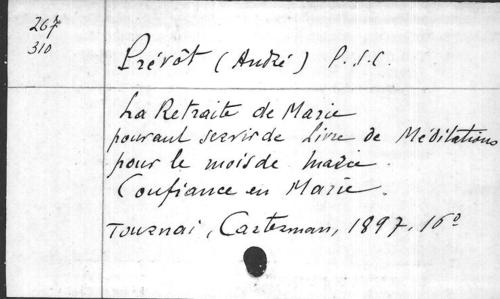 267
310
Prévôt (André) P. S. C.
La Retraite de Marie
pouvant servir de Livre de Méditations
pour le mois de Marie.
Confiance en Marie.
Tournai, Casterman, 1897. 16º